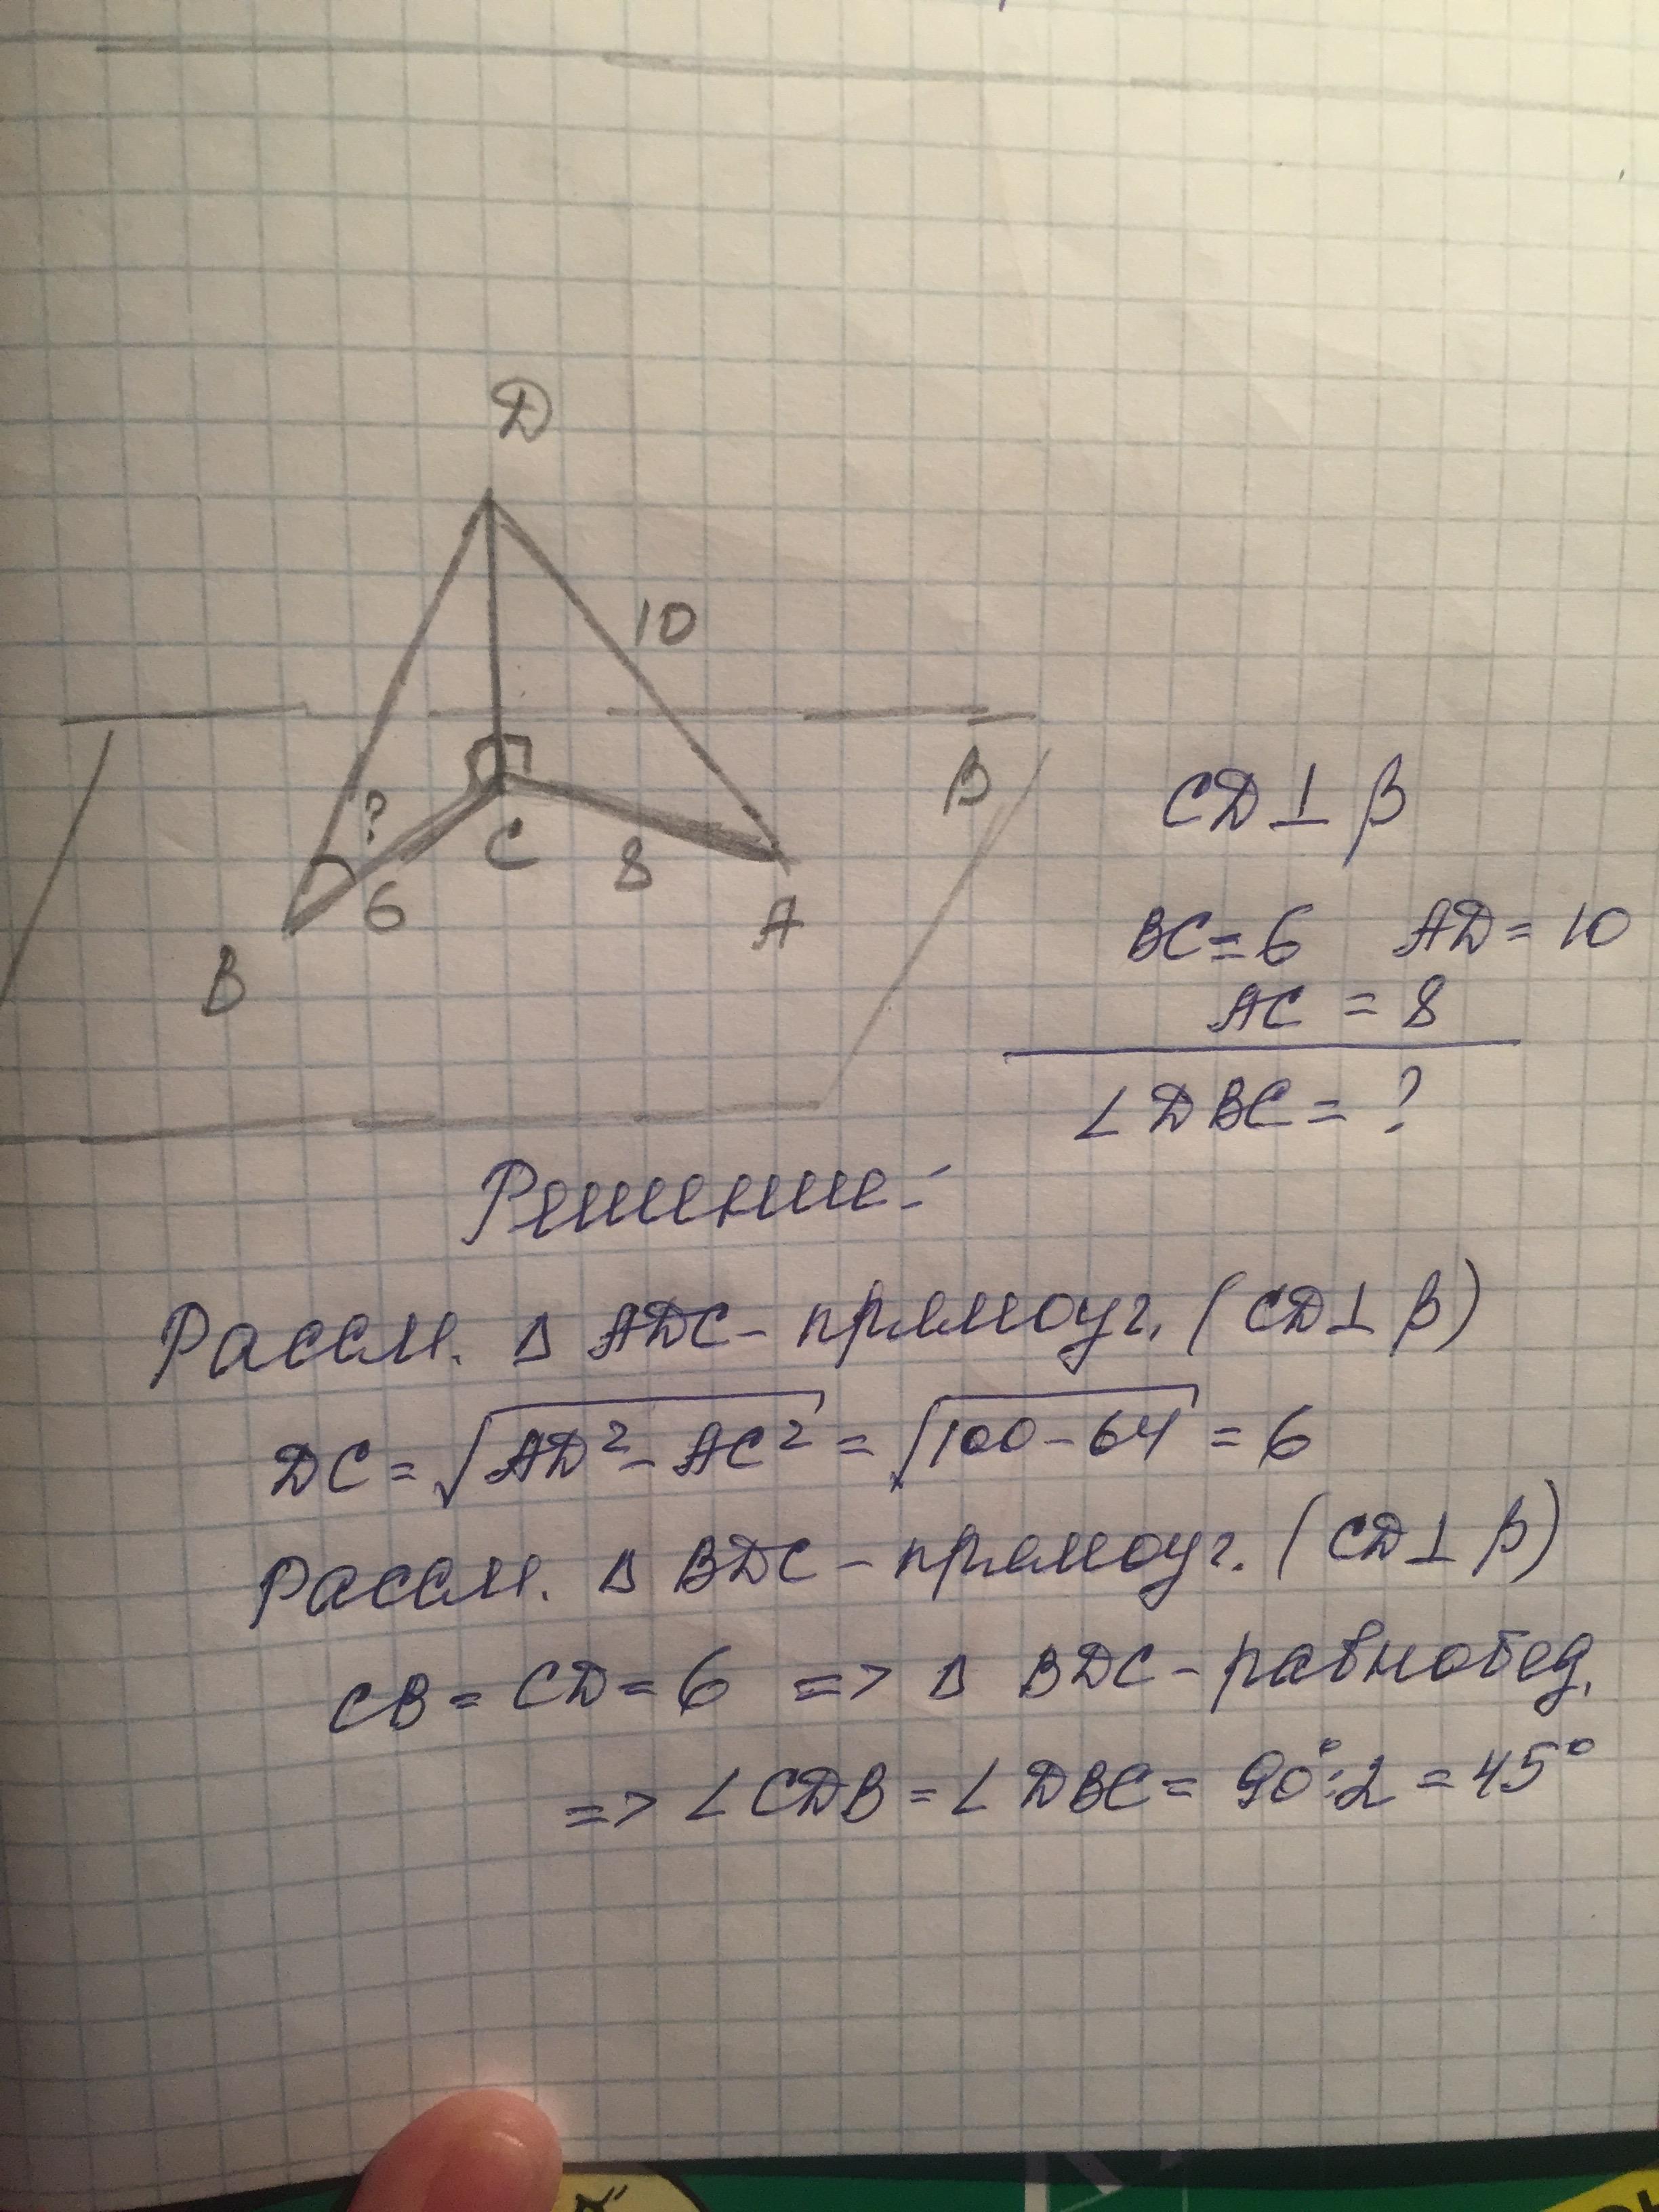 D
10
?
C
8
β
6
A
B
CD⊥β
BC=6 AD=10
AC=8
∠DBC=?
Решение:
Рассм. Δ ADC - прямоуг. (CD⊥β)
DC=√AD²-AC²=√100-64=6
Рассм. Δ BDC - прямоуг. (CD⊥β)
CB=CD=6 => Δ BDC - равнобед.
=> ∠CDB=∠DBC=90°:2=45°